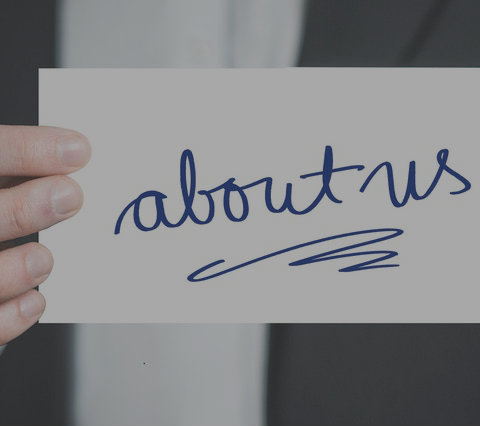 about us